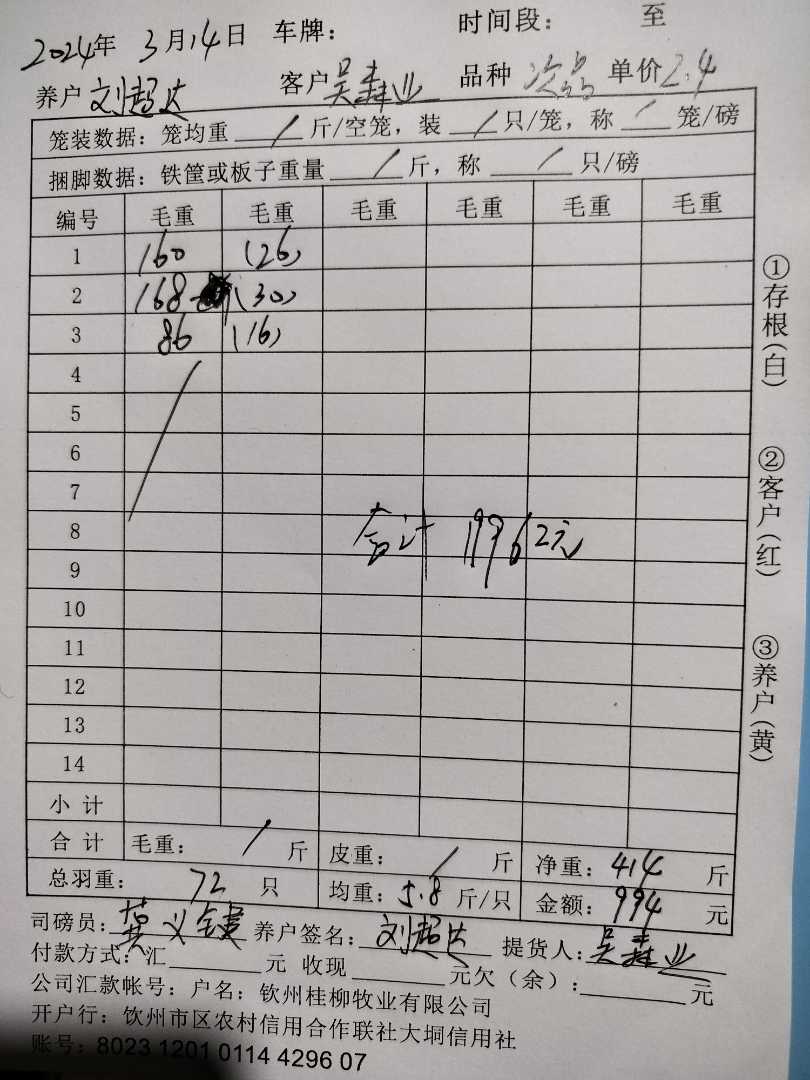 2024年 3月14日 车牌： 时间段： 至
养户 刘超达 客户 吴森业 品种 次品 单价 2.4
笼装数据：笼均重 / 斤/空笼，装 / 只/笼，称 / 笼/磅
捆脚数据：铁筐或板子重量 / 斤，称 / 只/磅
编号 毛重 毛重 毛重 毛重 毛重 毛重
1 160 (26)
2 168 (30)
3 86 (16)
4
5
6
7
8 合计 11962元
9
10
11
12
13
14
小计
合计 毛重： / 斤 皮重： / 斤 净重：414 斤
总羽重： 72 只 均重：5.8 斤/只 金额：994 元
司磅员： 养户签名：刘超达 提货人：吴森业
付款方式：汇 元 收现 元欠（余）： 元
公司汇款帐号：户名：钦州桂柳牧业有限公司
开户行：钦州市区农村信用合作联社大垌信用社
账号：8023 1201 0114 4296 07
①存根（白）
②客户（红）
③养户（黄）